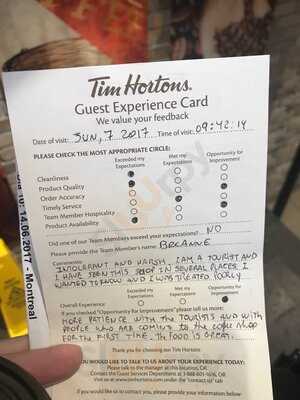 Tim Hortons.
Guest Experience Card
We value your feedback
Date of visit: JUN, 7 2017 Time of visit: 09:42:14
PLEASE CHECK THE MOST APPROPRIATE CIRCLE:
Exceeded my Expectations
Met my Expectations
Opportunity for Improvement
Cleanliness
Product Quality
Order Accuracy
Timely Service
Team Member Hospitality
Product Availability
Did one of our Team Members exceed your expectations? NO
Please provide the Team Member's name:
Comments: INTOLERANT AND HARSH. I AM A TOURIST AND
I HAVE SEEN THIS SHOP IN SEVERAL PLACES I
WANTED TO KNOW AND I WAS TREATED POORLY
Exceeded my Expectations
Met my Expectations
Opportunity for Improvement
Overall Experience:
If you checked "Opportunity for Improvement" please tell us more:
MORE PATIENCE WITH THE TOURISTS AND WITH
PEOPLE WHO ARE COMING TO the coffee shop
FOR THE FIRST TIME. THE FOOD IS GREAT.
Thank you for choosing our Tim Hortons.
WOULD YOU LIKE TO TALK TO US ABOUT YOUR EXPERIENCE TODAY:
Please talk to the manager at this location, OR
Contact the Guest Services Department at 1-888-601-1616, OR
Visit us at www.timhortons.com under the "contact us" tab
If you would like us to contact you, please provide your information below:
14/06/2017 - Montreal